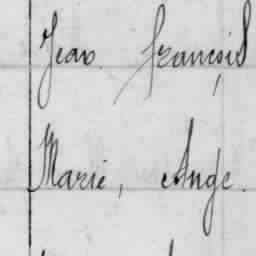 Jean. françois
Marie, Ange.